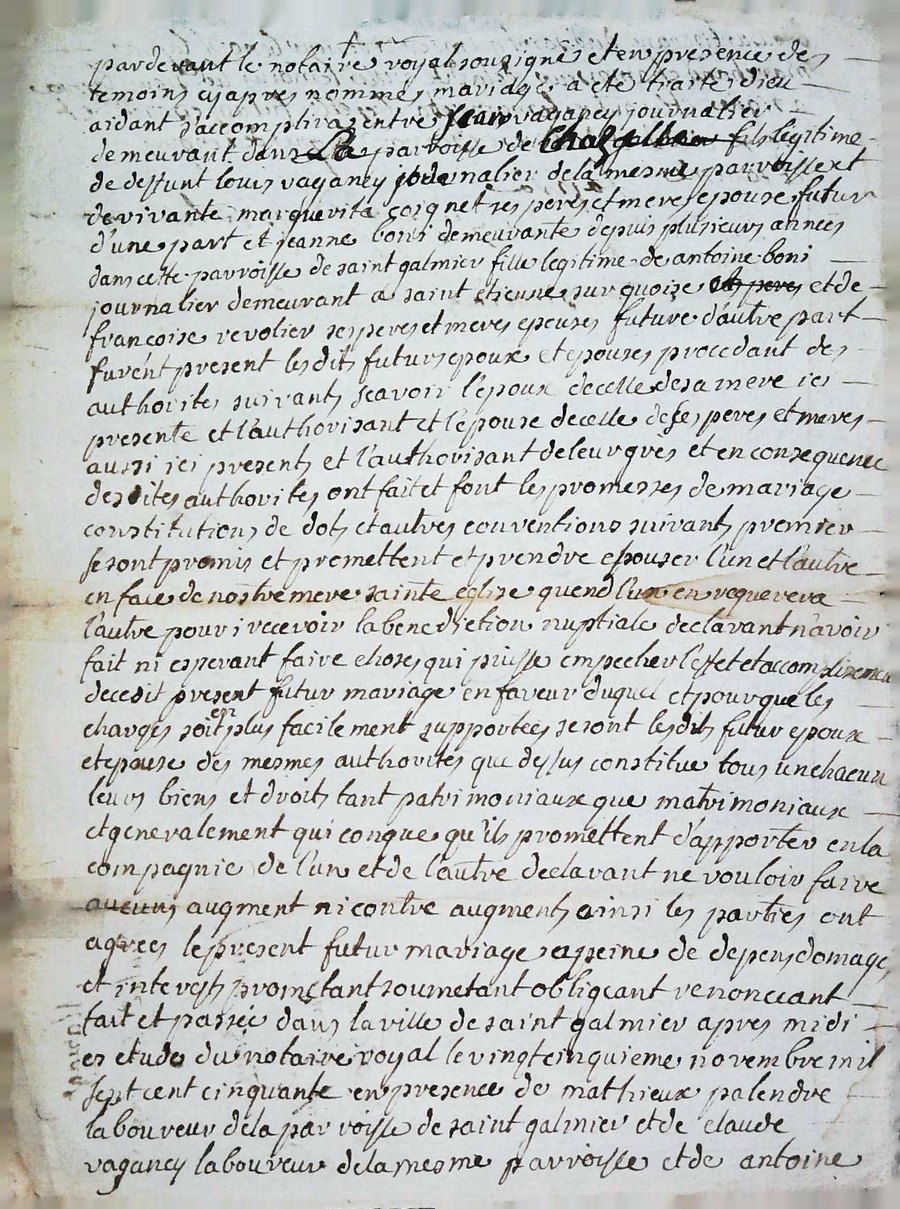 pardevant le notaire royal sousigné et en presence des
temoins cyapres nommes mariage a eté traité dieu
aidant s'accomplira entre Jean vaganey journalier
demeurant dans La parroisse de fils legitime
de deffunt louis vaganey journalier de la mesme parroisse et
de vivante marguerita coignet ses peres et mere epouse futur
d'une part et jeanne boni demeurante depuis plusieurs années
dans cette parroisse de saint galmier fille legitime de antoine boni
journalier demeurant a saint etienne sur quoise ses peres et de
francoise revolier ses peres et meres epouses future d'autre part
furent present lesdits futurs epoux et epouses procedant des
authorites suivants scavoir l'epoux decelle de sa mere ici
presente et l'authorisant et l'epouse decelle de ses peres et meres
aussi ici presents et l'authorisant de leur gres et en consequence
desdites authorites ont fait et font les promesses de mariage
constitutions de dots et autres conventions suivants premier
se sont promis et promettent et prendre epouser l'un et l'autre
en face de nostre mere sainte eglise quend l'un en requerera
l'autre pour i recevoir la benediction nuptiale declarant n'avoir
fait ni esperant faire choses qui puisse empecher l'effet et accomplisement
decedit present futur mariage en faveur duquel et pour que les
charges soient plus facilement supportées seront lesdits futur epoux
et epouse des mesmes authorites que dessus constitue tous un chacun
leurs biens et droits tant patrimoniaux que matrimoniaux
et generalement qui conque qu'ils promettent d'apporter en la
compagnie de l'un et de l'autre declarant ne vouloir faire
aucuns augment ni contre augments ainsi les parties ont
agrees le present futur mariage a peine de depens domages
et interests promettant soumetant obligeant renonceant
fait et passée dans la ville de saint galmier apres midi
es etude du notaire royal le vingt cinquieme novembre mil
sept cent cinquante en presence de mathieux palendre
laboureur de la parroisse de saint galmier et de claude
vaganey laboureur de la mesme parroisse et de antoine